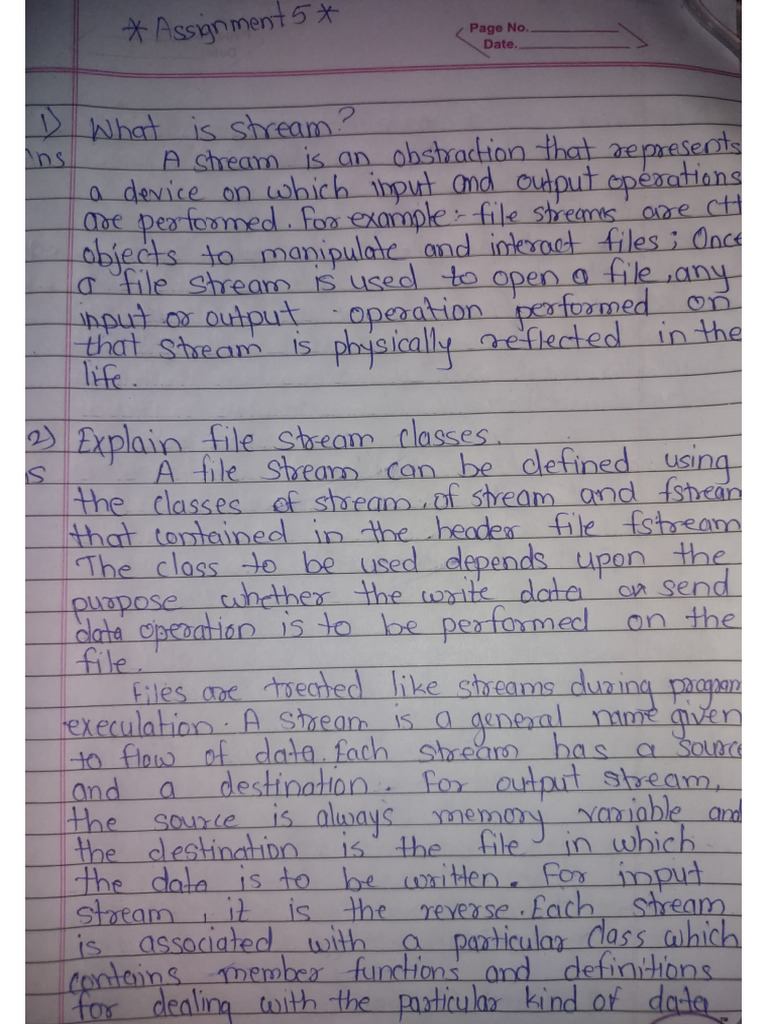 * Assignment 5 *
Page No.
Date.
1) What is stream?
Ins A stream is an obstraction that represents
a device on which input and output operations
are performed. For example :- file streams are C++
objects to manipulate and interact files; Once
a file stream is used to open a file, any
input or output operation performed on
that stream is physically reflected in the
life.
2) Explain file stream classes.
s A file stream can be defined using
the classes of stream, of stream and fstream
that contained in the header file fstream
The class to be used depends upon the
purpose whether the write data or send
data operation is to be performed on the
file.
Files are treated like streams during program
execulation. A stream is a general name given
to flow of data. Each stream has a source
and a destination. For output stream,
the source is always memory variable and
the destination is the file in which
the data is to be written. For input
stream, it is the reverse. Each stream
is associated with a particular class which
contains member functions and definitions
for dealing with the particular kind of data